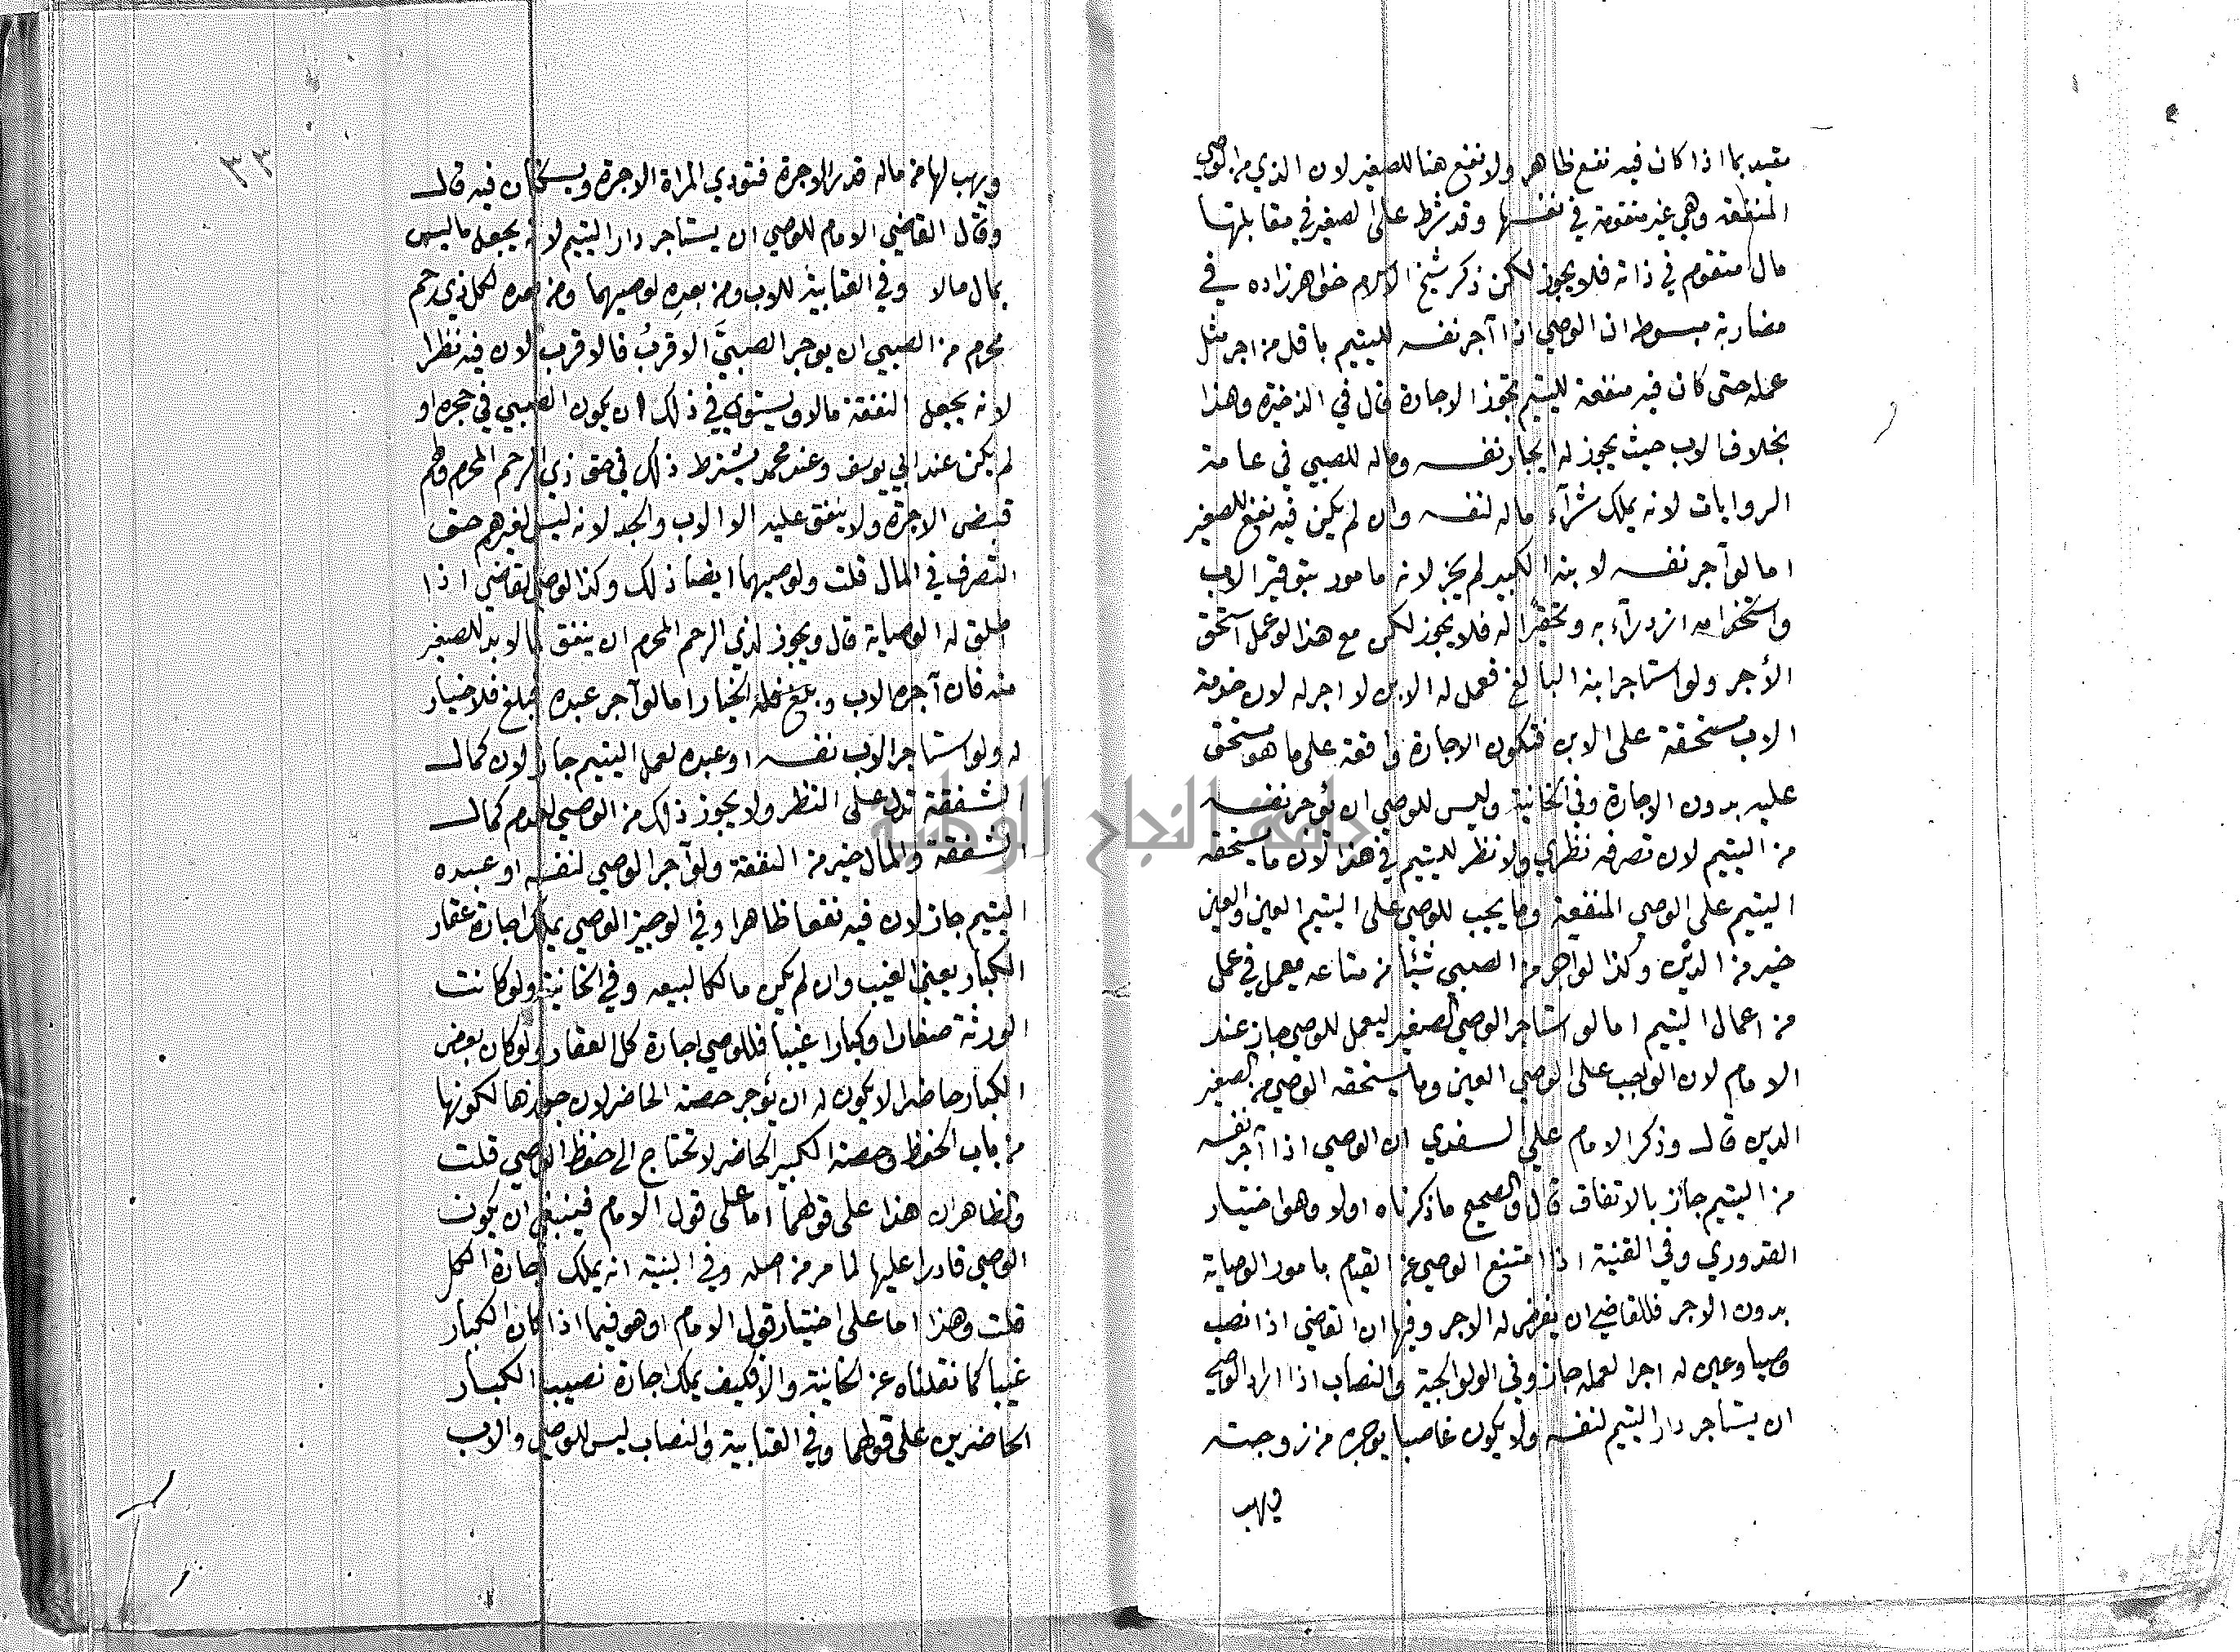 مقيد بما اذا كان فيه نفع ظاهر ولا نفع هنا للصغير لان الذي من الوصي
المنفعة وهي غير متقومة في نفسها وقد شرط على الصغير في مقابلتها
مال متقوم في ذاته فلا يجوز لكن ذكر شيخ الاسلام خواهر زاده في
مضاربة مبسوطه ان الوصي اذا آجر نفسه لليتيم باقل من اجر مثل
عمله حتى كان فيه منفعة لليتيم تجوز الاجارة قال في الذخيرة وهذا
بخلاف الاب حيث يجوز له ايجار نفسه وماله للصبي في عامة
الروايات لانه يملك شرآء ماله لنفسه وان لم يكن فيه نفع للصغير
اما لو آجر نفسه لابنه الكبير لم يجز لانه مامور بتوقير الاب
واستخدامه ازدرآء به وتحقيرا له فلا يجوز لكن مع هذا لو عمل استحق
الأجر ولو استاجر ابنه البالغ فعمل له الابن لا اجر له لان خدمة
الاب مستحقة على الابن فتكون الاجارة واقعة على ما هو مستحق
عليه بدون الاجارة وفي الخانية وليس للوصي ان يؤجر نفسه
من اليتيم لان تصرفه نظري ولا نظر لليتيم في هذا لان ما يستحقه
اليتيم على الوصي المنفعة وما يجب للوصي على اليتيم العين والعين
خير من الدين وكذا لو آجر من الصبي شيئا من متاعه يعمل في عمل
من اعمال اليتيم اما لو استاجر الوصي الصغير ليعمل للوصي جاز عند
الامام لان الواجب على الوصي العين وما يستحقه الوصي من الصغير
الدين قال وذكر الامام علي السغدي ان الوصي اذا آجر نفسه
من اليتيم جائز بالاتفاق قال والصحيح ما ذكرناه اولا وهو اختيار
القدوري وفي القنية اذا امتنع الوصي عن القيام بامور الوصاية
بدون الاجر فللقاضي ان يفرض له الاجر وفيها ان القاضي اذا نصب
وصيا وعين له اجرا لعمله جاز وفي الولوالجية والنصاب اذا اراد الوصي
ان يستاجر دار اليتيم لنفسه ولا يكون غاصبا يوجره من زوجته
ويهب
٣٣
ويهب لها من ماله قدر الاجرة فتؤدي المراة الاجرة ويسكنان فيه قال
وقال القاضي الامام للوصي ان يستاجر دار اليتيم لانه يجعل ما ليس
بمال مالا وفي العتابية للاب ومن بعده لوصيهما ومن بعده لكل ذي رحم
محرم من الصبي ان يوجر الصبيَّ الاقربُ فالاقرب لان فيه نظرا
لانه يجعل النفقة مالا ويستوي في ذلك ان يكون الصبي في حجره او
لم يكن عند ابي يوسف وعند محمد يشترط ذلك في حق ذي الرحم المحرم ولهم
قبض الاجرة ولا ينفق عليه الا الاب والجد لانه ليس لغيرهم حق
التصرف في المال قلت ولوصيهما ايضا ذلك وكذا لوصي القاضي اذا
اطلق له الوصاية قال ويجوز لذي الرحم المحرم ان ينفق ما لابد للصغير
منه فان آجره الاب وبلغ فله الخيار اما لو آجر عبده فبلغ فلا خيار
له ولو استاجر الاب نفسه او عبده لعمل اليتيم جاز لان كمال
الشفقة تدل على النظر ولا يجوز ذلك من الوصي لعدم كمال
الشفقة والمال خير من النفقة ولو آجر الوصي لنفسه او عبده
اليتيم جاز لان فيه نفعا ظاهرا وفي الوجيز الوصي يملك اجارة عقار
الكبار يعني الغيب وان لم يكن مالكا لبيعه وفي الخانية ولو كانت
الورثة صغارا وكبارا غيبا فللوصي اجارة كل العقار ولو كان بعض
الكبار حاضرا لا يكون له ان يؤجر حصة الحاضر لان جوازها لكونها
من باب الحفظ وحصة الكبير الحاضر لا تحتاج الى حفظ الوصي قلت
والظاهر ان هذا على قولهما اما على قول الامام فينبغي ان يكون
الوصي قادرا عليها لما مر من اصله وفي البنية انه يملك اجارة الكل
قلت وهذا اما على اختيار قول الامام او هو فيما اذا كان الكبار
غيبا كما نقلناه عن الخانية والا فكيف يملك اجارة نصيب الكبار
الحاضرين على قولهما وفي العتابية والنصاب ليس للوصي والاب
جامعة النجاح الوطنية